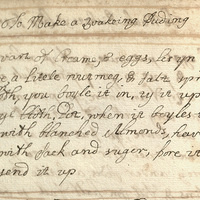 To Make a Quakeing Puding
quart of Creame, 8 eggs, leryn
a little nutmeg, & Salt, spri
Cloth, you boyle it in, ty it up
ye broth, Pot, when it boyles
with blanched Almonds, hav
with Sack and suger, pore it
send it up